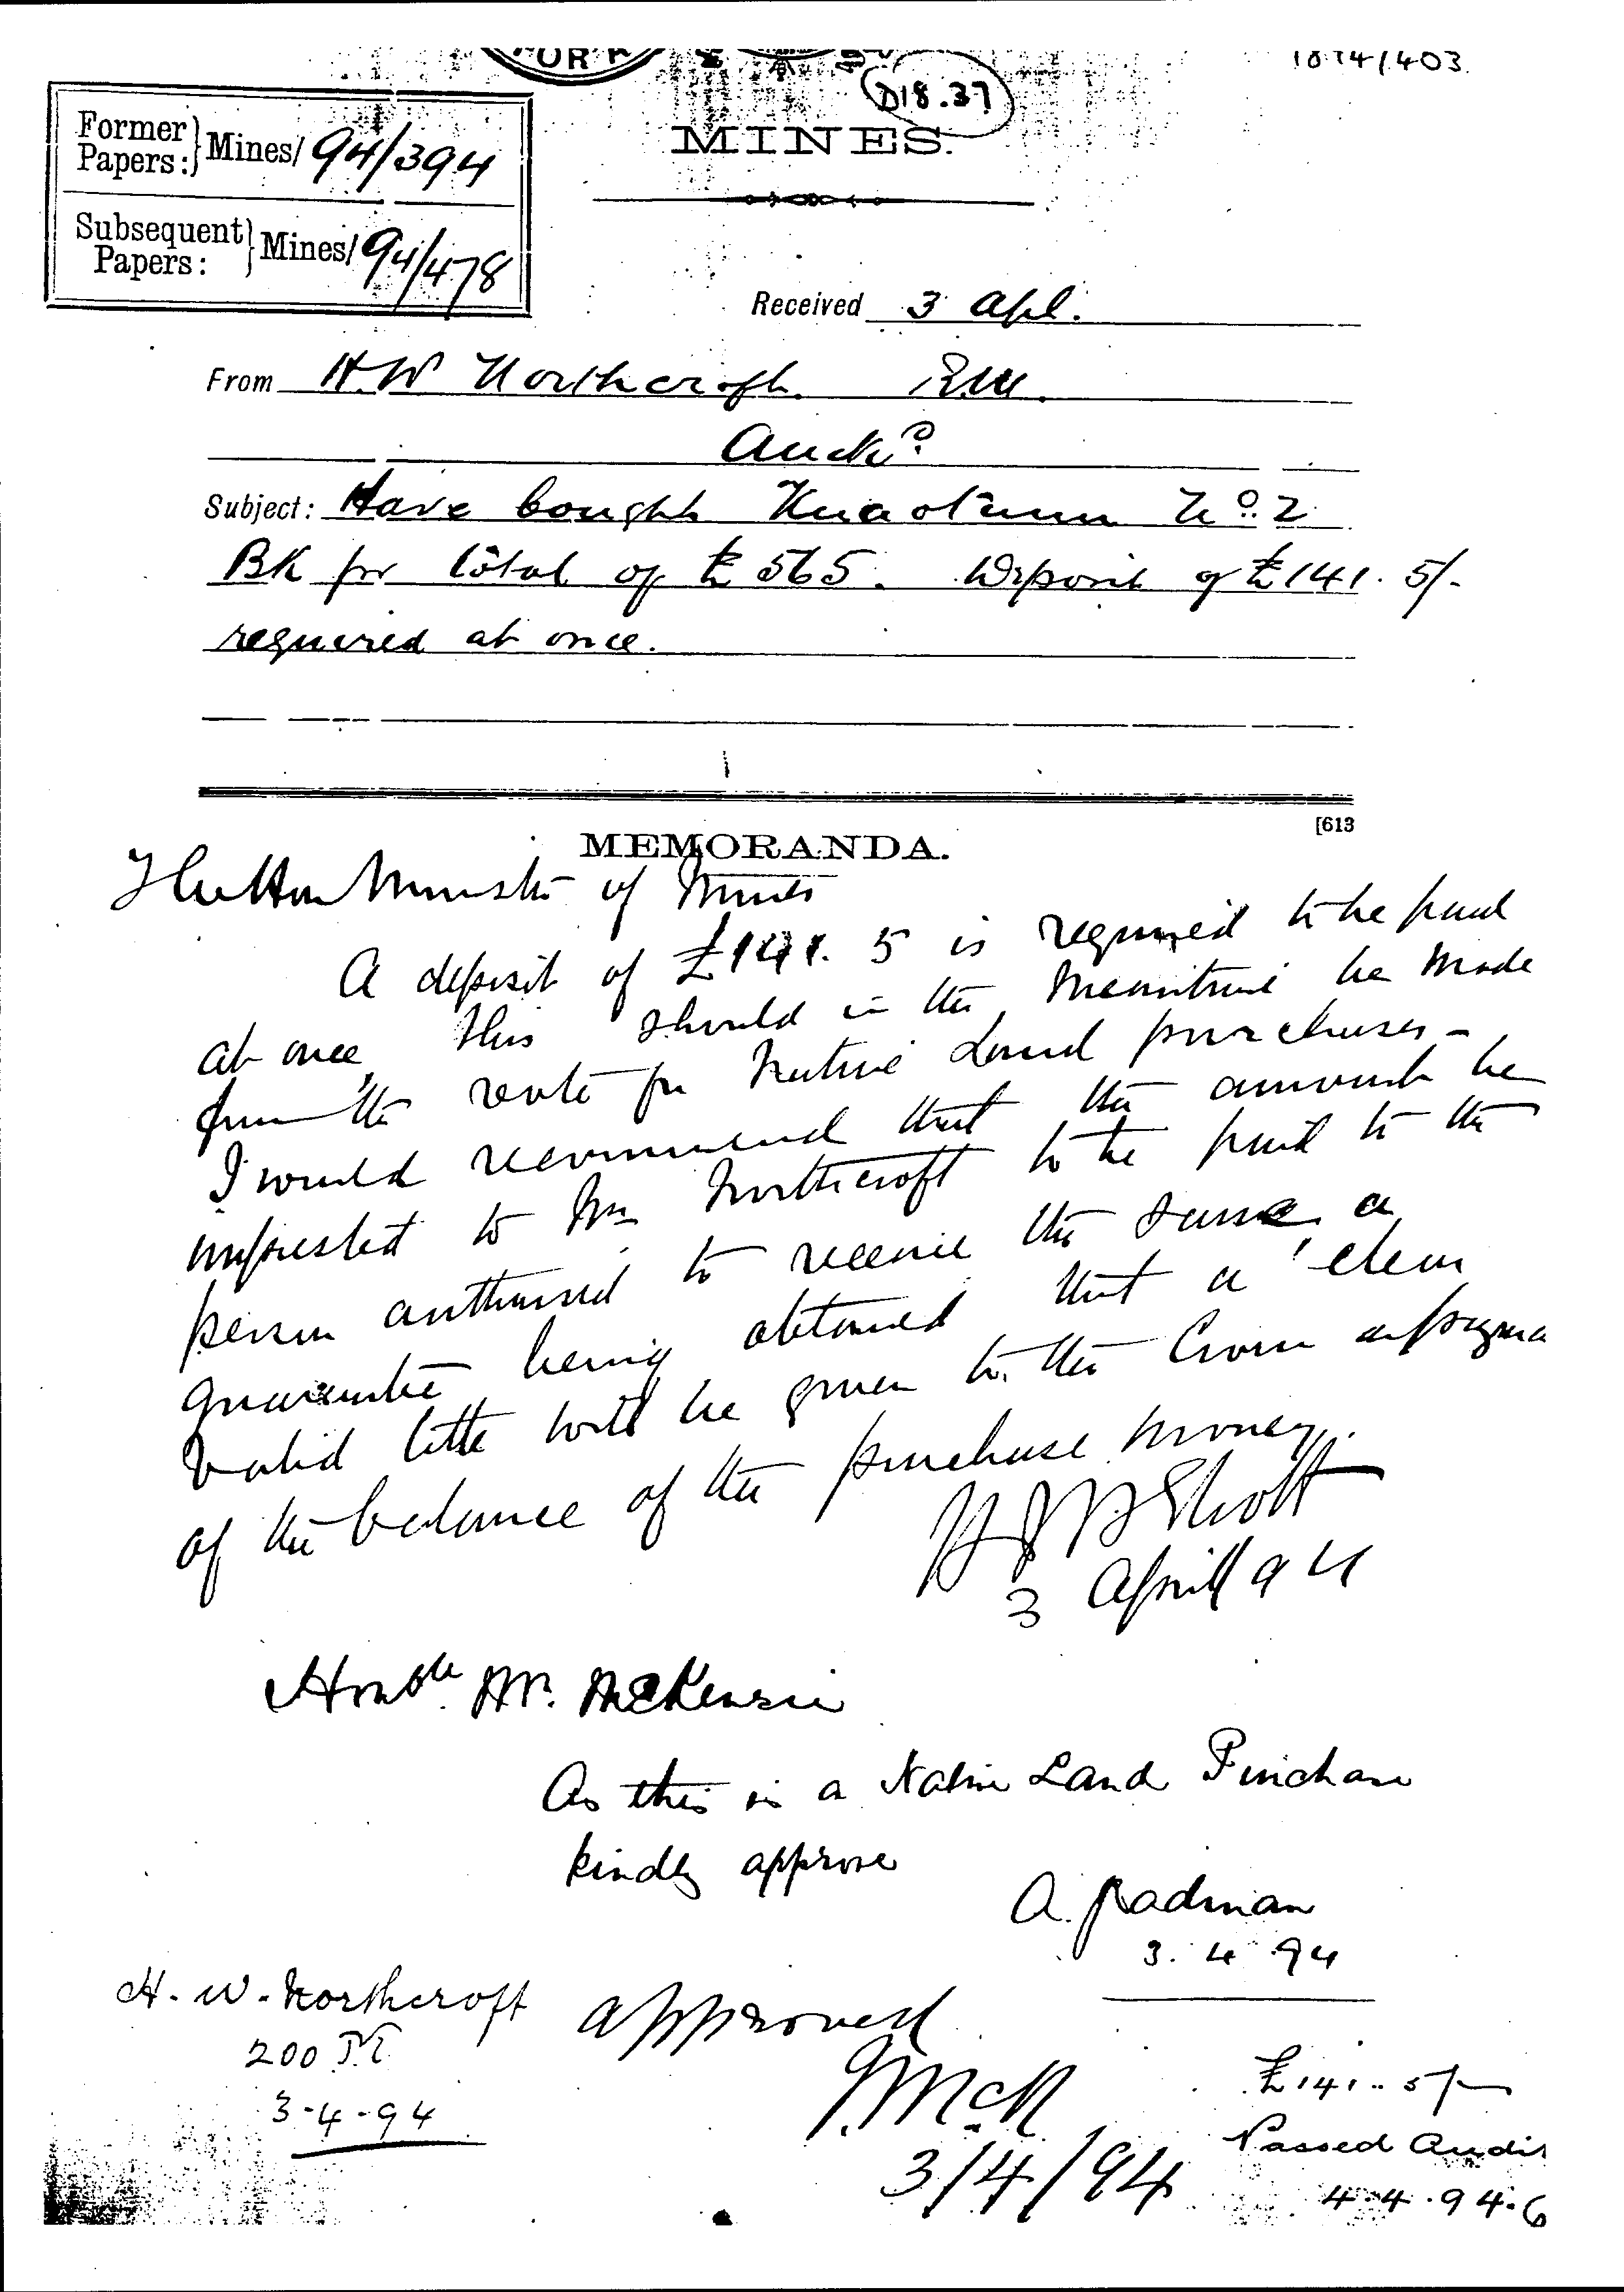 1894/403
D18.37
MINES.
Former Papers: } Mines/ 94/394
Subsequent Papers: } Mines/ 94/478
Received 3 Apl.
From H.W Northcroft. R.M.
Auckd.
Subject: Have bought Kuaotunu No. 2
BK for total of £565. Deposit of £141. 5/-
required at once.
[613
MEMORANDA.
The Hon Minister of Mines
A deposit of £141. 5 is required to be paid
at once, this should in the meantime be made
from the vote for Native Land purchases -
I would recommend that the amount be
imprested to Mr Northcroft to be paid to the
person authorised to receive the same, a
guarantee being obtained that a clear
valid title will be given to the Crown on payment
of the balance of the purchase money.
3 April 94
Honble. Mr. McKenzie
As this is a Native Land Purchase
kindly approve
A. Cadman
3. 4 94
H. W. Northcroft
200
3-4-94
approved
J. McK
3/4/94
£141..5/-
Passed Audit
4.4.94.6